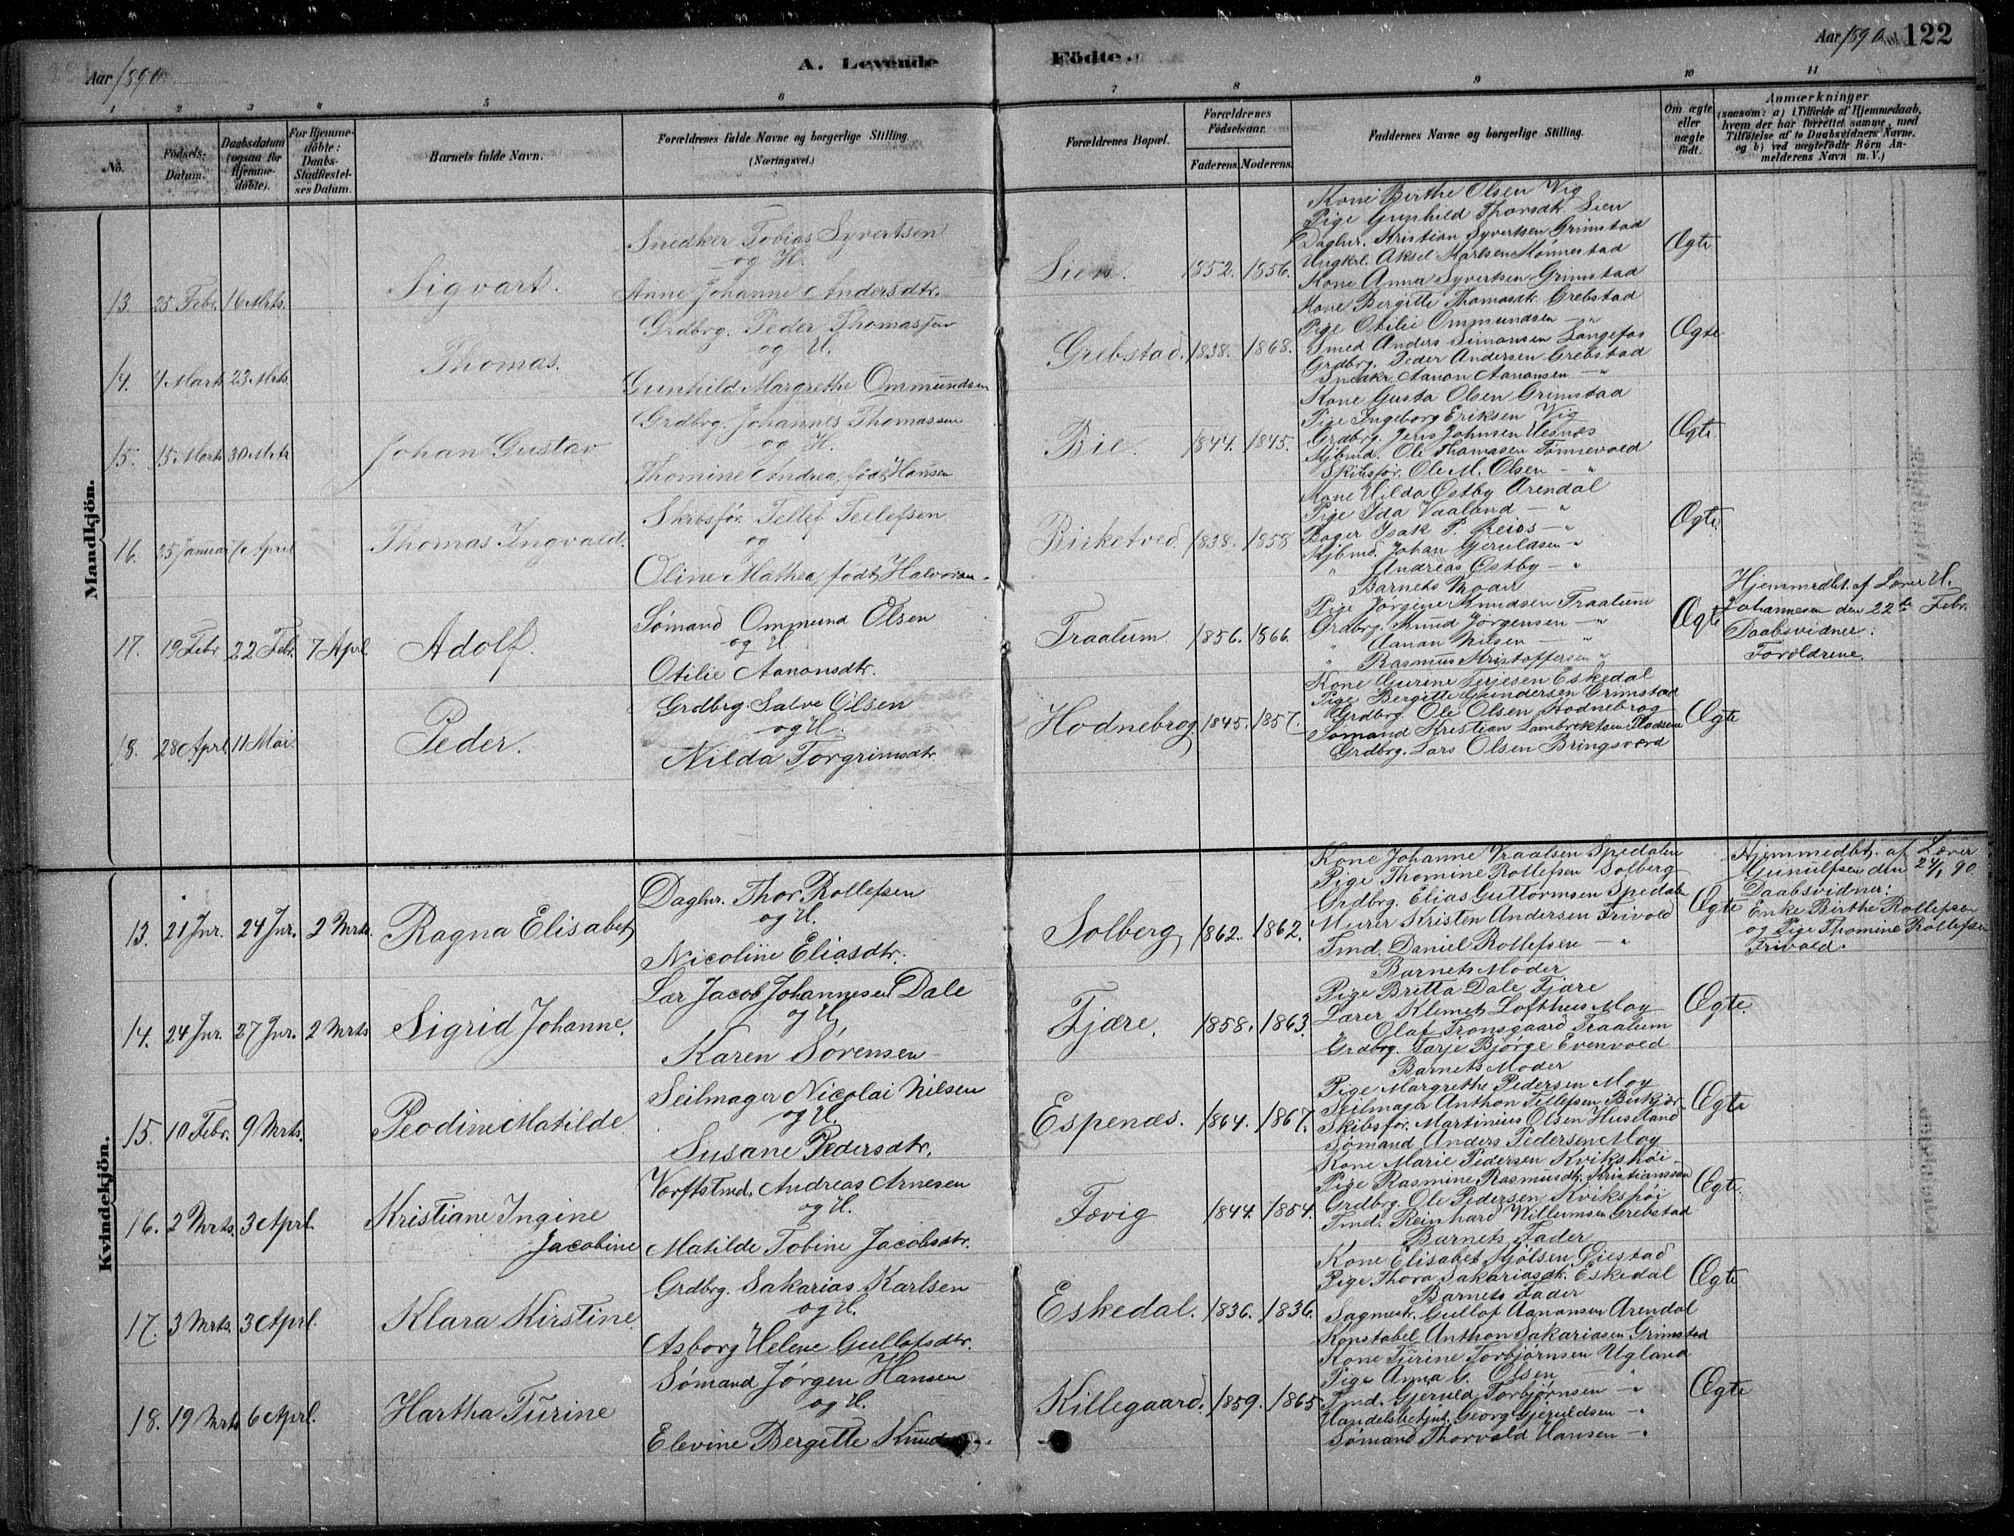 Aar 1890
A. Levende
Födte.
Aar 1890
122
1 2 3 4 5 6 7 8 9 10 11
No.
Födsels-Datum.
Daabsdatum (ogsaa for Hjemmedöbte).
For Hjemmedöbte: Daabs-Stadfæstelses Datum.
Barnets fulde Navn.
Forældrenes fulde Navne og borgerlige Stilling. (Næringsvei.)
Forældrenes Bopæl.
Forældrenes Födselsaar.
Faderens. Moderens.
Faddernes Navne og borgerlige Stilling.
Om ægte eller nægte födt.
Anmærkninger
(saasom: a) i Tilfælde af Hjemmedaab, hvem der har forrettet samme, med Tilföielse af to Daabsvidners Navne, og b) ved nægtefödte Börn Anmelderens Navn m. V.)
Mandkjön.
13. 25 Febr. 16 Mrts. Sigvart.
Snedker Tobias Syvertsen
og H.
Anne Johanne Andersdtr.
Sien. 1852. 1856.
Kone Birthe Olsen Vig
Pige Gunhild Thorsdtr. Sien
Daglnr. Kristian Syvertsen Grimstad
Ungkrl. Aksel Karlsen Mønnestad
Kone Anna Syvertsen Grimstad
Ægte
14. 4 Marts 23 Mrts. Thomas.
Grdbrg. Peder Thomassen
og H.
Gunhild Margrethe Ommundsen
Grebstad. 1838. 1868.
Kone Bergitte Thomasdtr. Grebstad
Pige Otilie Ommundsen - "
Smed Anders Simonsen Langefos
Grdbrg. Peder Andersen Grebstad
Snedkr. Aanon Aanonsen - "
Ægte
15. 15 Marts 30 Mrts Johan Gustav
Grdbrg. Johannes Thomassen
og H.
Thomine Andrea, født Hansen
Bie. 1844. 1845.
Kone Gusta Olsen Grimstad
Pige Ingeborg Eriksen Vig
Grdbrg. Jens Johnsen Vesnæs
Kjbmd. Ole Thomasen Tønnevold
Skibsfør. Ole M. Olsen - "
Ægte
16. 25 Januar 7 April Thomas Ingvald.
Skibsfør. Tellef Tellefsen
og
Oline Mathea, født Halvorsen.
Birketved. 1838. 1858
Kone Hilda Østby Arendal
Pige Ida Vaaland - "
Bager Isak P. Reios - "
Kjbmd. Johan Gjeruldsen - "
" Andreas Østby - "
Ægte
17. 19 Febr 22 Feb. 7 Apl. Adolf.
Sømand Ommund Olsen
og H.
Otilie Aanonsdtr.
Traalum 1856. 1866.
Barnets Moder
Pige Jørgene Knudsen Traalum
Grdbrg. Knud Jørgensen - "
" Aanon Nilsen - "
" Rasmus Kristoffersen "
Ægte
Hjemmedbt. af Lærer H.
Johannesen den 22de Febr.
Daabsvidner:
Foreldrene.
18. 28 Aprl. 11 Mai. Peder.
Grdbrg. Salve Olsen
og H.
Nilda Torgrimsdtr.
Hodnebrog 1845. 1857.
Kone Gurine Terjesen Eskedal
Pige Bergitte Gundersen Grimstad
Grdbrg. Ole Olsen Hodnebrog
Sømand Kristian Lambrektsen
Grdbrg. Lars Olsen Bringsverd
Ægte
Kvindekjön.
13. 21 Jnr. 24 Jnr. 2 Mrts. Ragna Elisabet
Daglnr. Thor Rollefsen
og H.
Nicoline Eliasdtr.
Solberg 1862. 1862.
Kone Johanne Vraalsen Spedalen
Pige Thomine Rollefsen Solberg
Grdbrg. Elias Guttormsen Spedalen
Murer Kristen Andersen Frivold
Tmd. Daniel Rollefsen - "
Ægte
Hjemmedbt. af Lærer
Gunulfsen den 24/1 90.
Daabsvidner:
Enke Birthe Rollefsen
og Pige Thomine Rollefsen
Frivold.
14. 24 Jnr. 27 Jnr. 2 Mrts Sigrid Johanne.
Lær Jacob Johannesen Dale
og H.
Karen Sørensen
Fjære. 1858. 1863.
Barnets Moder
Pige Britta Dale Fjære
Lærer Klemet Lofthus Moy
" Olaf Tronsgaard Traalum
Grdbrg. Tarje Bjørge Evenvold
Ægte.
15. 10 Febr. 9 Mrts. Peodine Matilde
Seilmager Nicolai Nilsen
og H.
Susane Pedersdtr.
Espenæs. 1864. 1867.
Barnets Moder
Pige Margrethe Pedersen Moy
Seilmager Anthon Tellefsen
Skibsfør. Martinius Olsen Huseland
Sømand Anders Pedersen Moy
Ægte
16. 2 Mrts. 3 Aprl. Kristiane Ingine
Jacobine
Værftstmd. Andreas Arnesen
og H.
Matilde Tobine Jacobsdtr.
Fævig 1844. 1854.
Kone Marie Pedersen Kvikshøi
Pige Rasmine Rasmusdtr. Kristianssand
Grdbrg. Ole Pedersen Kvikshøi
Tmd. Reinhard Willumsen Grebstad
Barnets Fader
Ægte.
17. 3 Mrts. 3 Aprl. Klara Kirstine.
Grdbrg. Sakarias Karlsen
og H.
Asborg Helene Gullofsdtr.
Eskedal. 1836. 1836.
Kone Elisabet Mjølsen Giestad
Pige Thora Sakariasdtr. Eskedal
Barnets Fader
Sagmestr. Gullof Aanonsen Arendal
Konstabel Anthon Sakariasen Grimstad
Ægte
18. 19 Mrts 6 Aprl. Hartha Turine
Sømand Jørgen Hansen
og H.
Elevine Bergitte
Killegaard. 1859. 1865.
Kone Turine Torbjørnsen Ugland
Pige Anna G. Olsen "
Tmd. Gjeruld Torbjørnsen - "
Handelsbetjnt. Georg Gjeruldsen - "
Sømand Thorvald Hansen - "
Ægte